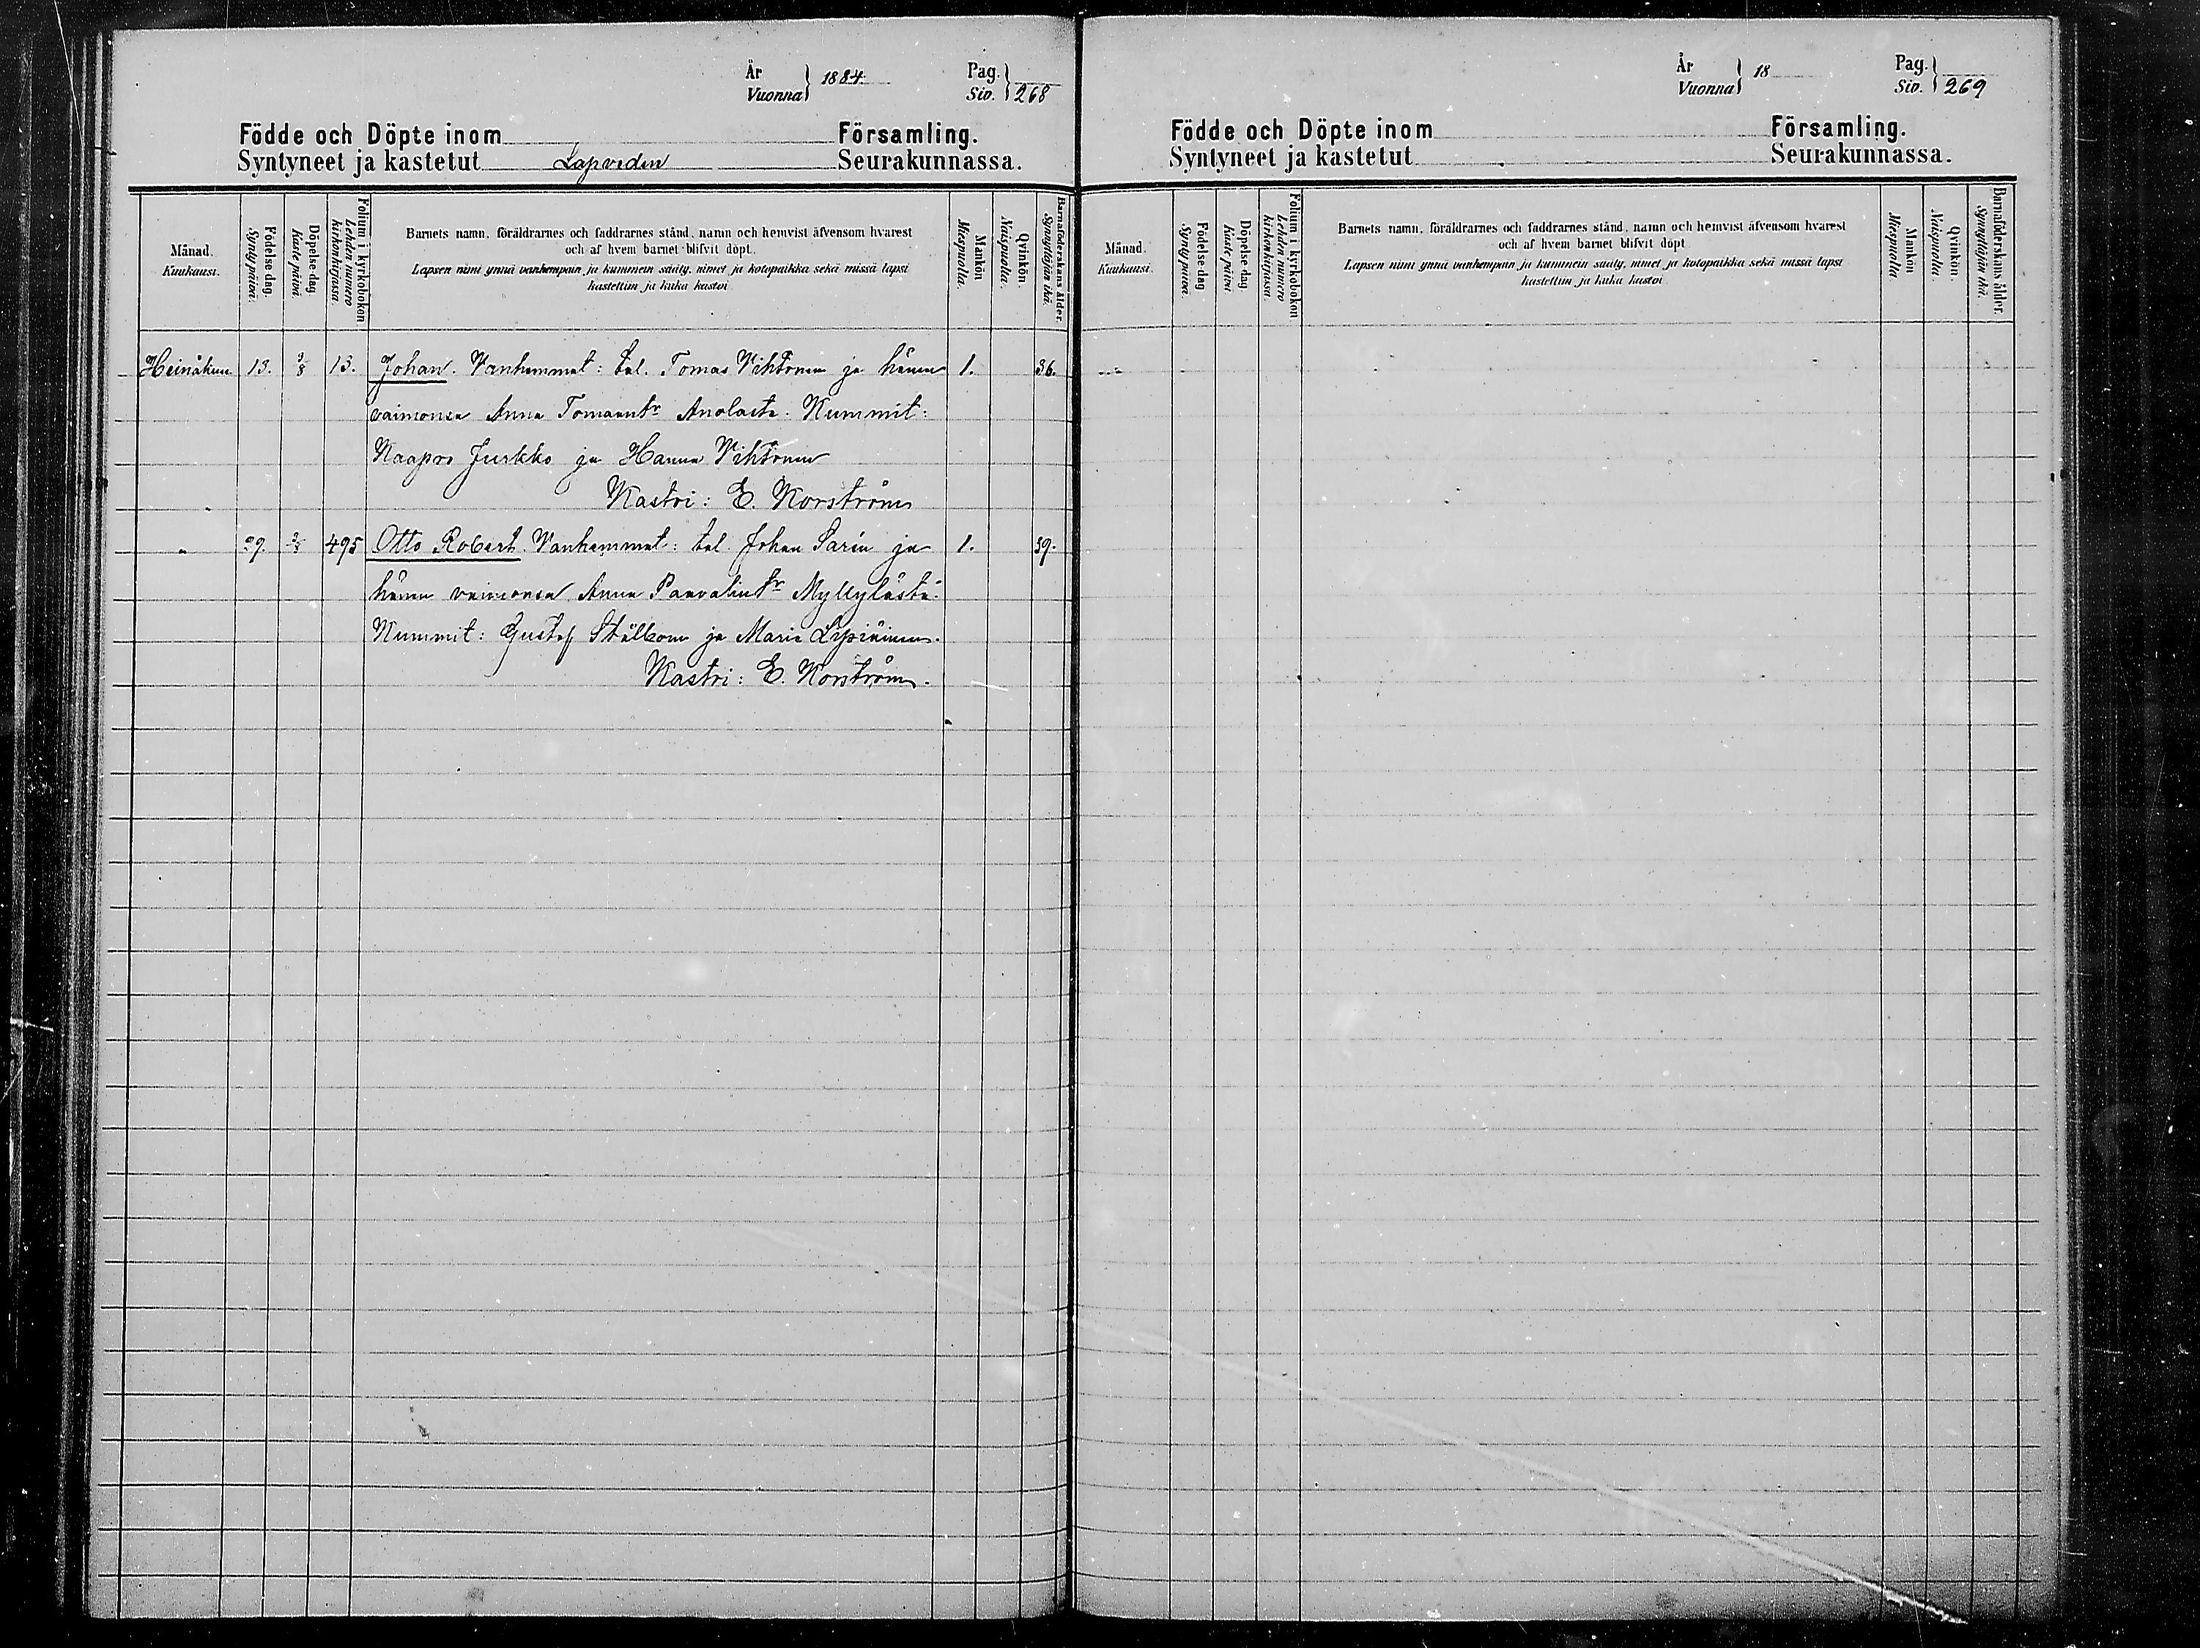 År
Vuonna } 1884.
Pag.
Siv. } 268
Födde och Döpte inom Församling.
Syntyneet ja kastetut Lapveden Seurakunnassa.
Månad.
Kuukausi.
Födelse-dag.
Syntypäivä.
Döpelse-dag
Kaste päivä
Folium i kyrkoboken
Lehden numero kirkonkirjassa
Barnets namn, föräldrarnes och faddrarnes stånd, namn och hemvist äfvensom hvarest
och af hvem barnet blifvit döpt.
Lapsen nimi ynnä vanhempain ja kummein sääty, nimet ja kotopaikka sekä missä lapsi
kastettiin ja kuka kastoi
Mankön
Miespuolta.
Qvinkön
Naispuolta.
Barnaföderskans ålder.
Synnyttäjän ikä.
Heinäkuu 13. 3/8 13. Johan. Vanhemmat: tal. Tomas Vihtonen ja hänen 1. 36.
vaimonsa Anna Tomaantr Anolasta. Kummit:
Kaapro Jurkko ja Hanna Vihtonen
Kastoi: E. Korström
" 29. 3/8 495 Otto Robert. Vanhemmat: tal. Johan Sarin ja 1. 39.
hänen vaimonsa Anna Paavalintr Myllylästä.
Kummit: Gustaf ja Maria
Kastoi: E. Korström.
År
Vuonna } 18
Pag.
Siv. } 269
Födde och Döpte inom Församling.
Syntyneet ja kastetut Seurakunnassa.
Månad.
Kuukausi.
Födelse-dag
Syntypäivä.
Döpelse-dag.
Kaste päivä
Folium i kyrkoboken
Lehden numero kirkonkirjassa.
Barnets namn, föräldrarnes och faddrarnes stånd, namn och hemvist äfvensom hvarest
och af hvem barnet blifvit döpt
Lapsen nimi ynnä vanhempain ja kummein sääty, nimet ja kotopaikka sekä missä lapsi
kastettiin ja kuka kastoi
Mankön
Miespuolta.
Qvinkön.
Naispuolta.
Barnaföderskans ålder.
Synnyttäjän ikä.